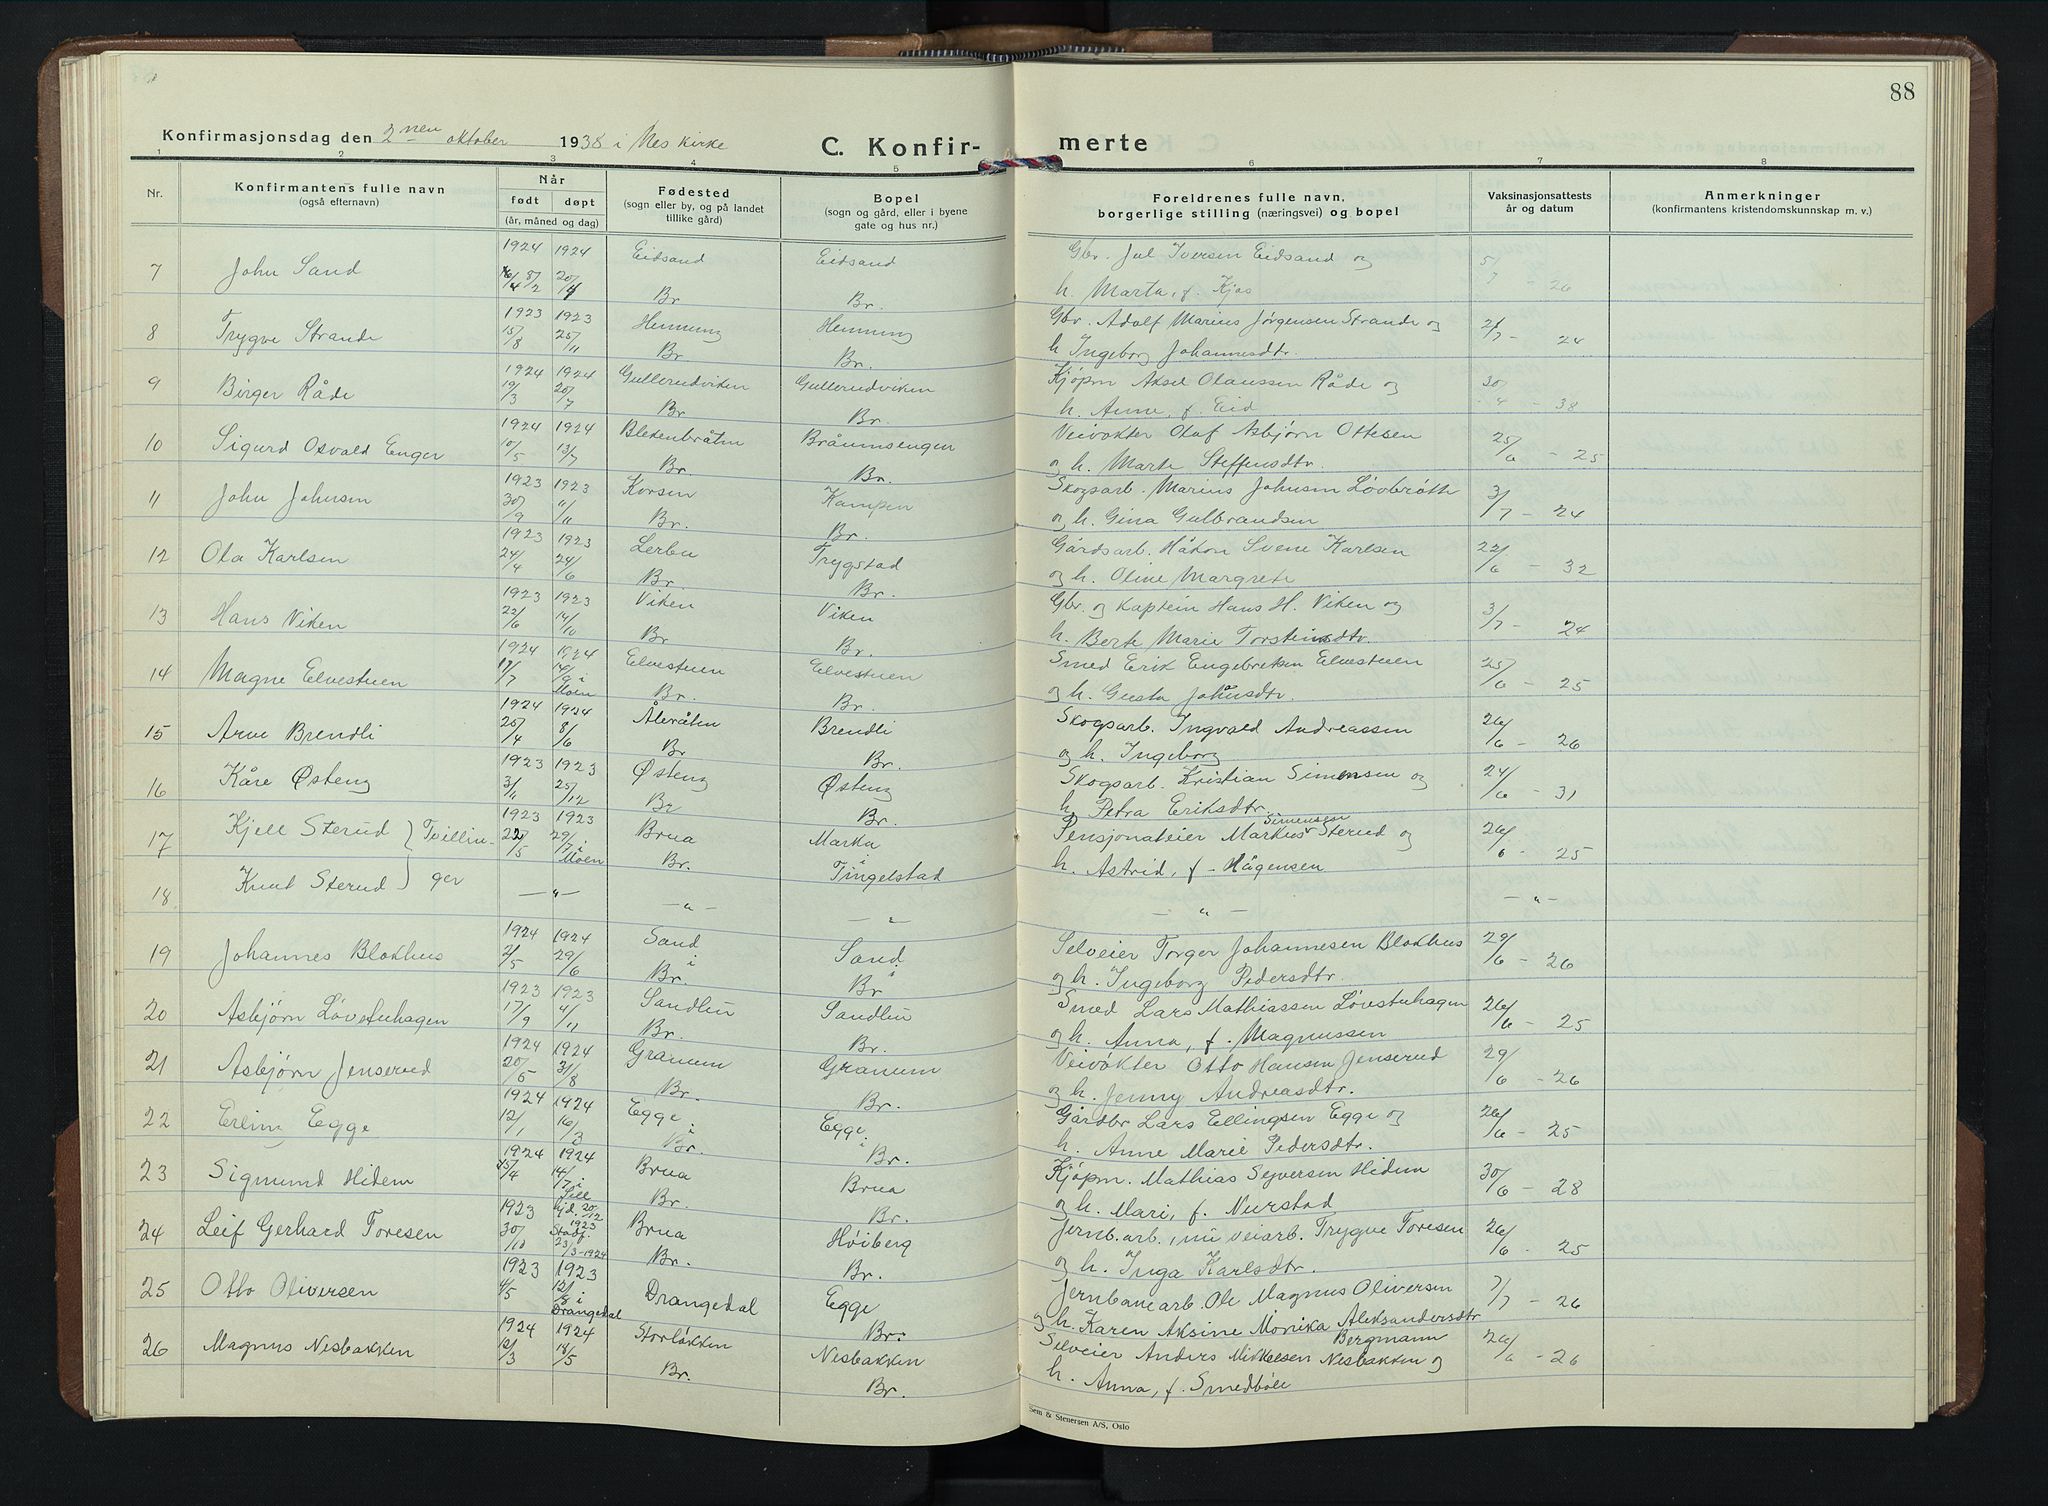 88
Konfirmasjonsdag den 2nen oktober 1938 i Nes kirke
C. Konfirmerte
1 2 3 4 5 6 7 8
Nr. Konfirmantens fulle navn (også efternavn) Når født døpt (år, måned og dag) Fødested (sogn eller by, og på landet tillike gård) Bopel (sogn og gård, eller i byene gate og hus nr.) Foreldrenes fulle navn, borgerlige stilling (næringsvei) og bopel Vaksinasjonsattests år og datum Anmerkninger (konfirmantens kristendomskunnskap m. v.)
7 John Sand 1924 1924 20/4 Eidsand Br Eidsand Br. Gbr. Jul Iversen Eidsand og h. Marta, f. Kjos 5/7 - 26
8 Trygve Strande 1923 15/8 1923 25/11 Henning Br. Henning Br. Gbr. Adolf Marius Jørgensen Strande og h Ingeborg Johannesdtr. 2/7 - 24
9 Birger Råde 1924 19/3 1924 20/7 Gullerudviken Br Gullerudviken Br. Kjøpm Aksel Olaussen Råde og h. Anne, f. Eid 30/4 - 38
10 Sigurd Osvald Enger 1924 10/5 1924 13/7 Blekenbråten Br. Bråumsengen Br. Veivokter Olaf Asbjørn Ottesen og h. Marte Steffensdtr. 25/6 - 25
11 John Johnsen 1923 30/9 1923 11/11 Korsen Br. Kampen Br. Skogsarb. Marius Johnsen Løvbråtte og h. Gina Gulbrandsen 3/7 - 24
12 Ola Karlsen 1923 24/4 1923 24/6 Lerbu Br Trygstad Br. Gårdsarb. Håkon Svene Karlsen og h. Oline Margrete 22/6 - 32
13 Hans Viken 1923 22/6 1923 14/10 Viken Br Viken Br. Gbr. og Kaptein Hans H. Viken og h. Berte Marie Torsteinsdtr. 3/7 - 24
14 Magne Elvestuen 1924 17/7 1924 14/9 i Moen Elvestuen Br. Elvestuen Br. Smed Erik Engebretsen Elvestuen og h. Gusta Johnsdtr. 25/6 - 25
15 Arve Brendli 1924 25/4 1924 8/6 Ålråten Br Brendli Br. Skogsarb. Ingvald Andreassen og h. Ingeborg 26/6 - 26
16 Kåre Østeng 1923 3/11 1923 25/12 Østeng Br Østeng Br. Skogsarb. Kristian Simensen og h. Petra Eriksdtr. 24/6 - 31
17 Kjell Sterud } Tvillin- 1923 22/5 1923 29/7 i Moen Brua Br. Marka i Tingelstad Pensjonateier Markus Simensen Sterud og h. Astrid, f. Hågensen 26/6 - 25
18 Knut Sterud } ger — " — — " — — " — — " — — " —
19 Johannes Blokhus 1924 2/5 1924 29/6 Sand i Br. Sand i Br Selveier Torger Johannesen Blokhus og h. Ingeborg Pedersdtr. 29/6 - 26
20 Asbjørn Løvstuhagen 1923 17/9 1923 4/11 Sandlun Br. Sandlun Br. Smed Lars Mathiassen Løvstuhagen og h. Anna, f. Magnussen 26/6 - 25
21 Asbjørn Jenserud 1924 20/5 1924 31/8 Granum Br. Granum Br. Veivokter Otto Hansen Jenserud og h. Jenny Andreasdtr. 29/6 - 26
22 Erling Egge 1924 12/1 1924 16/3 Egge i Br. Egge i Br. Gårdbr Lars Ellingsen Egge og h. Anne Marie Pedersdtr. 26/6 - 25
23 Sigmund Hidem 1924 25/4 1924 14/7 i Brua Br. Brua Br. Kjøpm. Mathias Seyversen Hidem og h. Mari, f. Nerstad 30/6 - 28
24 Leif Gerhard Toresen 1923 30/10 hjd. 20/12 1923 Stadf. 23/3-1924 Brua Br. Høiberg Br. Jernb.arb., nu veiarb. Trygve Toresen og h. Inga Karlsdtr. 26/6 - 25
25 Otto Oliversen 1923 4/5 1923 12/8 i Drangedal Drangedal Egge Br. Jernbanearb. Ole Magnus Oliversen og h. Karen Aksine Monika Aleksandersdtr Bergmann 7/7 - 26
26 Magnus Nesbakken 1924 12/3 1924 18/5 Storløkken Br. Nesbakken Br. Selveier Anders Mikkelsen Nesbakken og h. Anna, f. Smedbøle 26/6 - 26
Sem & Stenersen A/S, Oslo